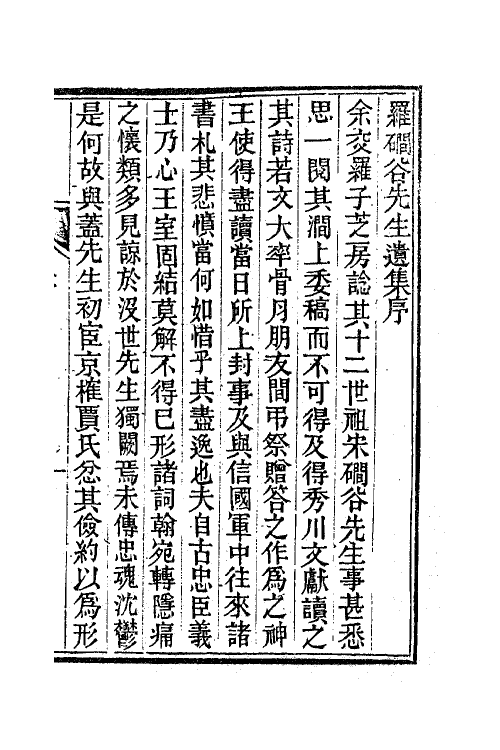 羅磵谷先生遺集序
余交羅子芝房諗其十二世祖宋磵谷先生事甚悉
思一閱其澗上委稿而不可得及得秀川文獻讀之
其詩若文大率骨月朋友間弔祭贈答之作爲之神
王使得盡讀當日所上封事及與信國軍中往來諸
書札其悲憤當何如惜乎其盡逸也夫自古忠臣義
士乃心王室固結莫解不得已形諸詞翰宛轉隱痛
之懷類多見諒於沒世先生獨闕焉未傳忠魂沈鬱
是何故與蓋先生初宦京榷賈氏忿其儉約以爲形